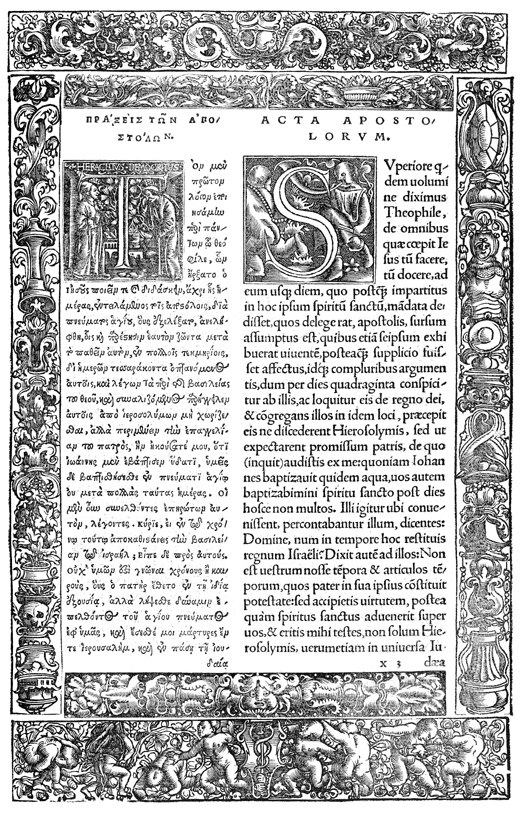 ΠΡΑΞΕΙΣ ΤΩΝ ΑΠΟ/
ΣΤΟΛΩΝ.
HERACLITVS DEMOCRITVS
Τὸν μὲν
πρῶτον
λόγον ἐποι
ησάμην
περὶ πάν/
των ὦ θεό
φιλε, ὧν
ἤρξατο ὁ
ἰησοῦς ποιεῖν τε καὶ διδάσκειν, ἄχρι ἧς ἡ-
μέρας, ἐντειλάμενος τοῖς ἀποστόλοις, διὰ
πνεύματος ἁγίου, οὓς ἐξελέξατο, ἀνελή-
φθη, οἷς καὶ παρέστησεν ἑαυτὸν ζῶντα μετὰ
τὸ παθεῖν αὐτὸν, ἐν πολλοῖς τεκμηρίοις,
δι' ἡμερῶν τεσσαράκοντα ὀπτανόμενος
αὐτοῖς, καὶ λέγων τὰ περὶ τῆς βασιλείας
τοῦ θεοῦ, καὶ συναλιζόμενος παρήγγειλεν
αὐτοῖς ἀπὸ ἱεροσολύμων μὴ χωρίζε
σθαι, ἀλλὰ περιμένειν τὴν ἐπαγγελί-
αν τοῦ πατρὸς, ἣν ἠκούσατέ μου, ὅτι
ἰωάννης μὲν ἐβάπτισεν ὕδατι, ὑμεῖς
δὲ βαπτισθήσεσθε ἐν πνεύματι ἁγίῳ
οὐ μετὰ πολλὰς ταύτας ἡμέρας. Οἱ
μὲν οὖν συνελθόντες ἐπηρώτων αὐ-
τὸν, λέγοντες. κύριε, εἰ ἐν τῷ χρό-
νῳ τούτῳ ἀποκαθιστάνεις τὴν βασιλεί
αν τῷ ἰσραήλ; εἶπε δὲ πρὸς αὐτούς.
οὐχ ὑμῶν ἐστι γνῶναι χρόνους ἢ και
ροὺς, οὓς ὁ πατὴρ ἔθετο ἐν τῇ ἰδίᾳ
ἐξουσίᾳ, ἀλλὰ λήψεσθε δύναμιν ἐ-
πελθόντος τοῦ ἁγίου πνεύματος
ἐφ' ὑμᾶς, καὶ ἔσεσθέ μοι μάρτυρες ἔν
τε ἱερουσαλὴμ, καὶ ἐν πάσῃ τῇ ἰου-
δαίᾳ
ACTA APOSTO/
LORVM.
SVperiore q-
dem uolumi
ne diximus
Theophile,
de omnibus
quæ cœpit Ie
sus tũ facere,
tũ docere, ad
eum usq; diem, quo postq̃ impartitus
in hoc ipsum spiritũ sanctũ, mãdata de-
disset, quos delegerat, apostolis, sursum
assumptus est, quibus etiã seipsum exhi
buerat uiuentẽ, posteaq̃ supplicio fuis-
set affectus, idq; compluribus argumen
tis, dum per dies quadraginta conspici-
tur ab illis, ac loquitur eis de regno dei,
& cõgregans illos in idem loci, præcepit
eis ne discederent Hierosolymis, sed ut
expectarent promissum patris, de quo
(inquit) audistis ex me: quoniam Iohan
nes baptizauit quidem aqua, uos autem
baptizabimini spiritu sancto post dies
hosce non multos. Illi igitur ubi conue-
nissent, percontabantur illum, dicentes:
Domine, num in tempore hoc restituis
regnum Israëli? Dixit autẽ ad illos: Non
est uestrum nosse tẽpora & articulos tẽ-
porum, quos pater in sua ipsius cõstituit
potestate: sed accipietis uirtutem, postea
quàm spiritus sanctus aduenerit super
uos, & eritis mihi testes, non solum Hie-
rosolymis, uerumetiam in uniuersa Iu-
x 3 dæa